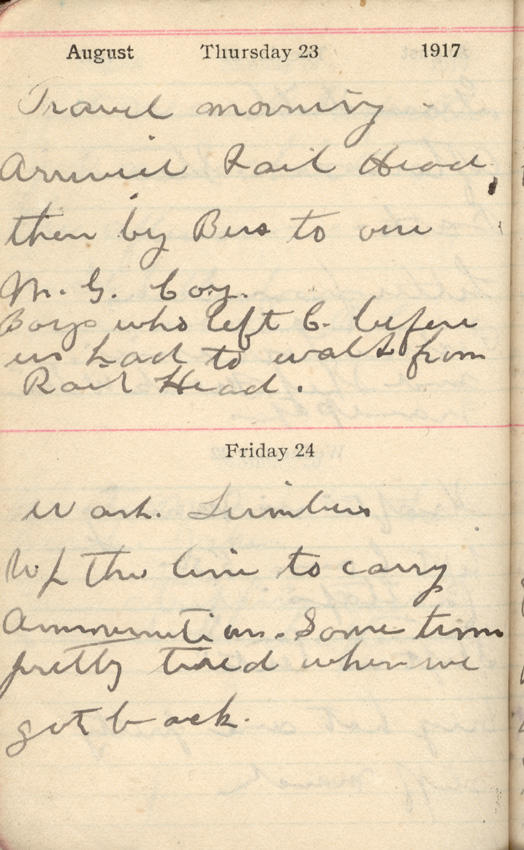 August Thursday 23 1917
Travel morning -
Arrived Rail Head,
then by Bus to our
M. G. Coy.
Boys who left C. before
us had to walk from
Rail Head.
Friday 24
Wash. Limbers
Up the line to carry
Ammunition. Some time
pretty tired when we
got back.